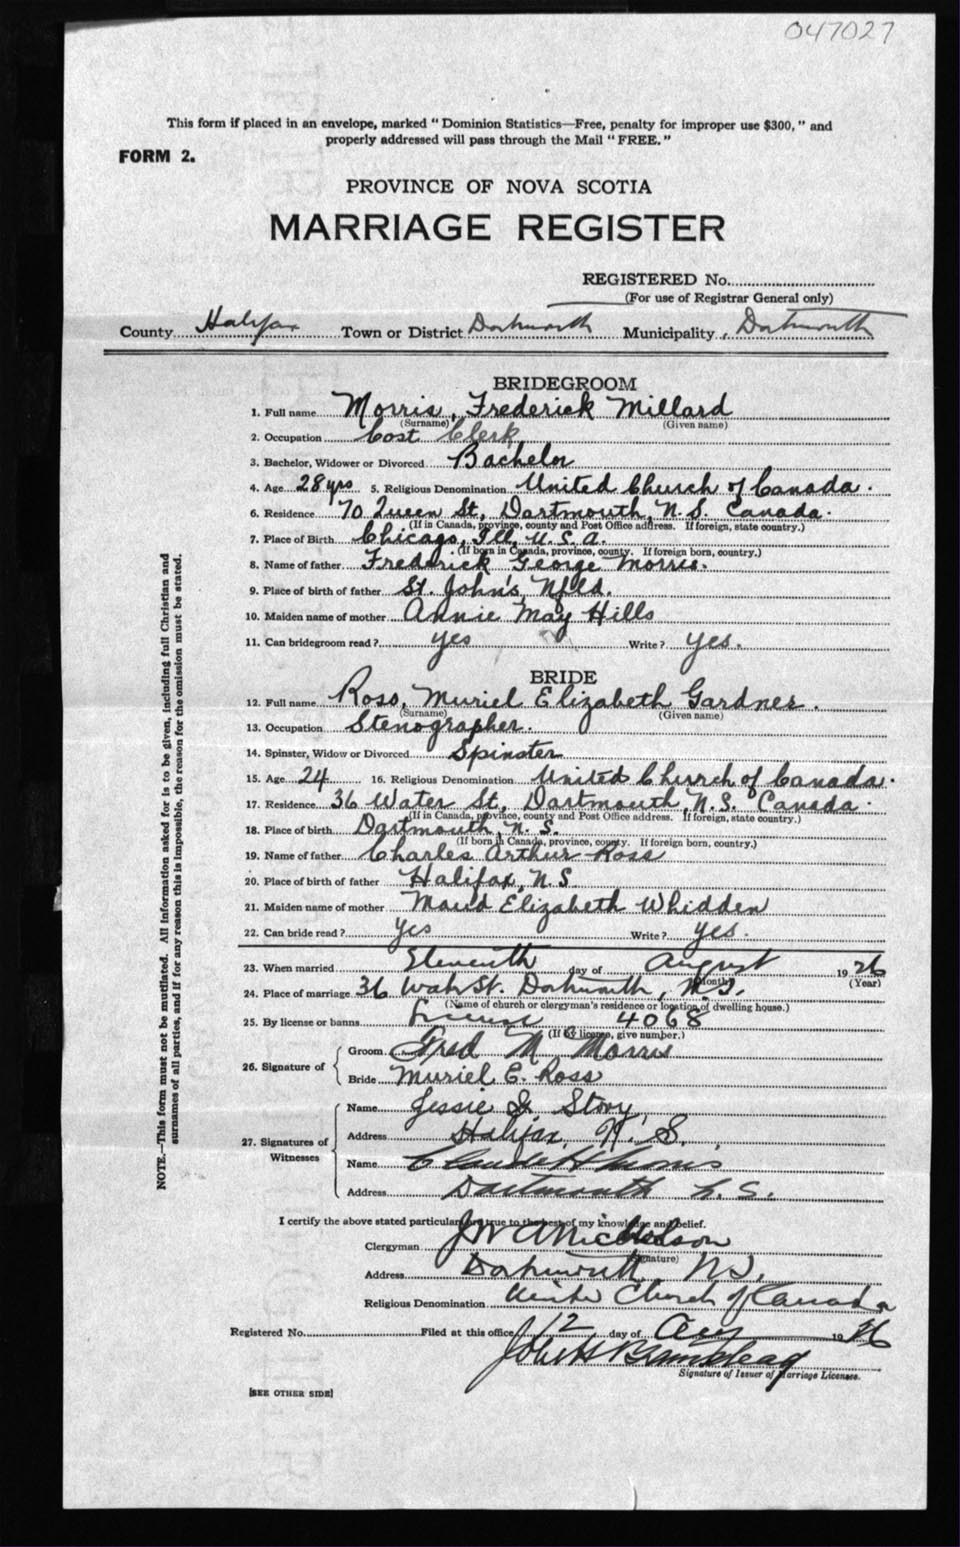 047027
This form if placed in an envelope, marked " Dominion Statistics—Free, penalty for improper use $300, " and
properly addressed will pass through the Mail " FREE. "
FORM 2.
PROVINCE OF NOVA SCOTIA
MARRIAGE REGISTER
REGISTERED No.
(For use of Registrar General only)
County Halifax Town or District Dartmouth Municipality Dartmouth
BRIDEGROOM
1. Full name Morris, Frederick Millard
(Surname) (Given name)
2. Occupation Cost Clerk
3. Bachelor, Widower or Divorced Bachelor
4. Age 28 yrs 5. Religious Denomination United Church of Canada.
6. Residence 70 Queen St, Dartmouth, N.S. Canada.
(If in Canada, province, county and Post Office address. If foreign, state country.)
7. Place of Birth Chicago, Ill, U.S.A.
(If born in Canada, province, county. If foreign born, country.)
8. Name of father Frederick George Morris.
9. Place of birth of father St. John's, Nfld.
10. Maiden name of mother Annie May Hills
11. Can bridegroom read? yes Write? yes.
BRIDE
12. Full name Ross, Muriel Elizabeth Gardner.
(Surname) (Given name)
13. Occupation Stenographer.
14. Spinster, Widow or Divorced Spinster
15. Age 24 16. Religious Denomination United Church of Canada.
17. Residence 36 Water St, Dartmouth, N.S. Canada.
(If in Canada, province, county and Post Office address. If foreign, state country.)
18. Place of birth Dartmouth, N.S.
(If born in Canada, province, county. If foreign born, country.)
19. Name of father Charles Arthur Ross
20. Place of birth of father Halifax, N.S.
21. Maiden name of mother Maud Elizabeth Whidden
22. Can bride read? Yes Write? yes.
23. When married Eleventh day of August 1926
(Month) (Year)
24. Place of marriage 36 Water St. Dartmouth, N.S.
(Name of church or clergyman's residence or location of dwelling house.)
25. By license or banns License 4068
(If by license, give number.)
26. Signature of
Groom Fred M Morris
Bride Muriel E. Ross
27. Signatures of Witnesses
Name Jessie Story
Address Halifax, N.S.
Name Claude H Morris
Address Dartmouth N.S.
I certify the above stated particulars are true to the best of my knowledge and belief.
Clergyman J W A Nicholson
(Signature)
Address Dartmouth N.S.
Religious Denomination United Church of Canada
Registered No. Filed at this office 12 day of Aug 1926
John H
Signature of Issuer of Marriage Licenses.
[SEE OTHER SIDE]
NOTE.—This form must not be mutilated. All information asked for is to be given, including full Christian and
surnames of all parties, and if for any reason this is impossible, the reason for the omission must be stated.